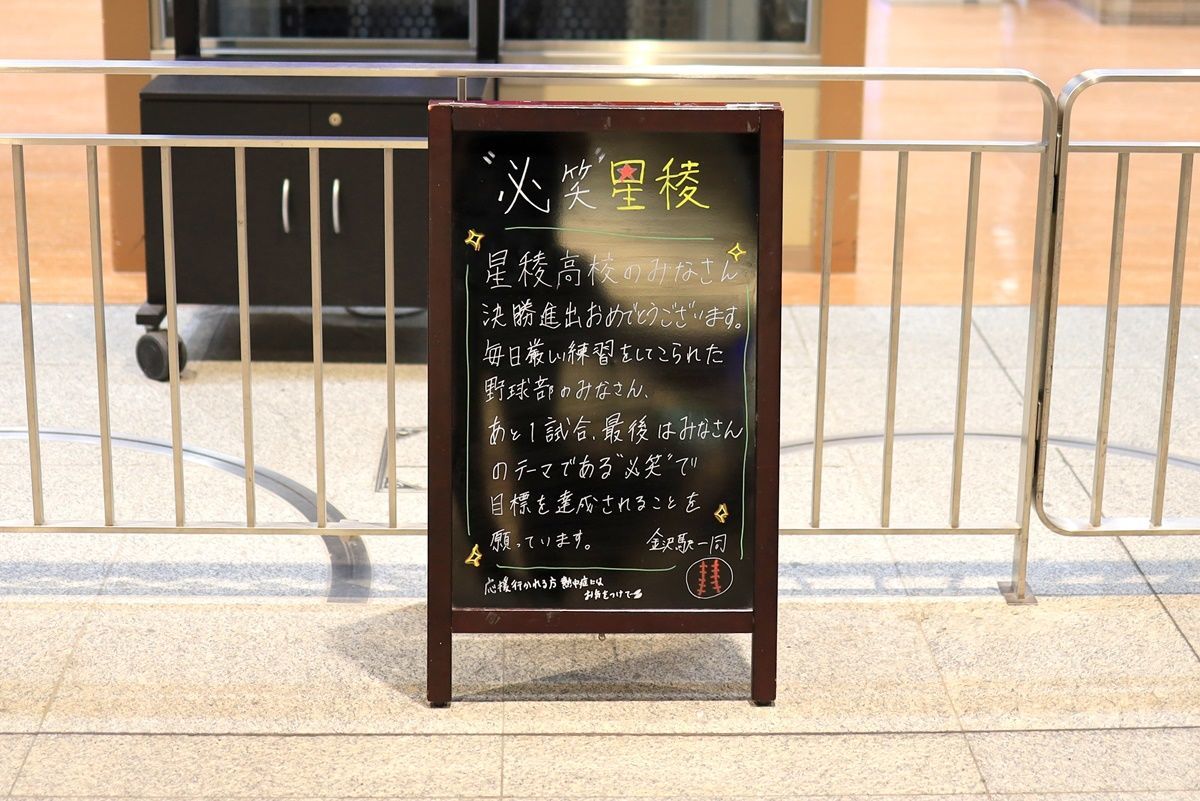 "必笑"星稜
星稜高校のみなさん
決勝進出おめでとうございます。
毎日厳しい練習をしてこられた
野球部のみなさん、
あと1試合、最後はみなさん
のテーマである"必笑"で
目標を達成されることを
願っています。 金沢駅一同
応援行かれる方 熱中症には
お気をつけて